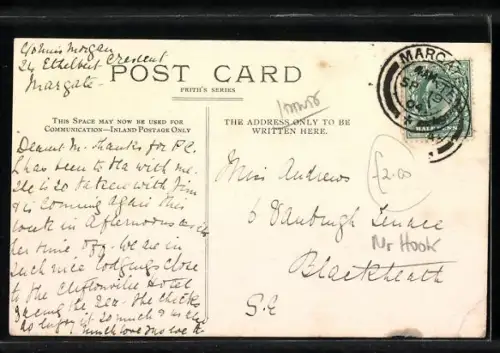 c/o Miss Morgan
24 Ethelbert Crescent
Margate
POST CARD
FRITH'S SERIES
THIS SPACE MAY NOW BE USED FOR
COMMUNICATION—INLAND POSTAGE ONLY
THE ADDRESS ONLY TO BE
WRITTEN HERE.
Dearest M. Thanks for P.C.
has been to tea with me.
is so taken with Jim
& is coming again this
week in afternoon with
her time off. We are in
such nice lodgings close
to the Cliftonville Hotel
facing the sea. The
so much
much love
Miss Andrews
6 Vanbrugh Terrace
Blackheath
S.E
£2.00
Nr Hook
MARGATE
HALFPENNY